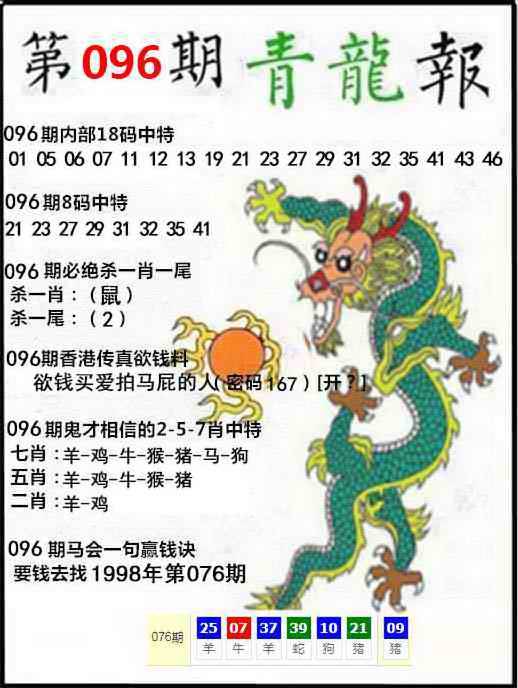 第096期青龍報
096期内部18码中特
01 05 06 07 11 12 13 19 21 23 27 29 31 32 35 41 43 46
096期8码中特
21 23 27 29 31 32 35 41
096期必绝杀一肖一尾
杀一肖：（鼠）
杀一尾：（2）
096期香港传真欲钱料
欲钱买爱拍马屁的人（密码167）[开？]
096期鬼才相信的2-5-7肖中特
七肖：羊-鸡-牛-猴-猪-马-狗
五肖：羊-鸡-牛-猴-猪
二肖：羊-鸡
096期马会一句赢钱诀
要钱去找1998年第076期
076期 25 07 37 39 10 21 09
羊 牛 羊 蛇 狗 猪 猪